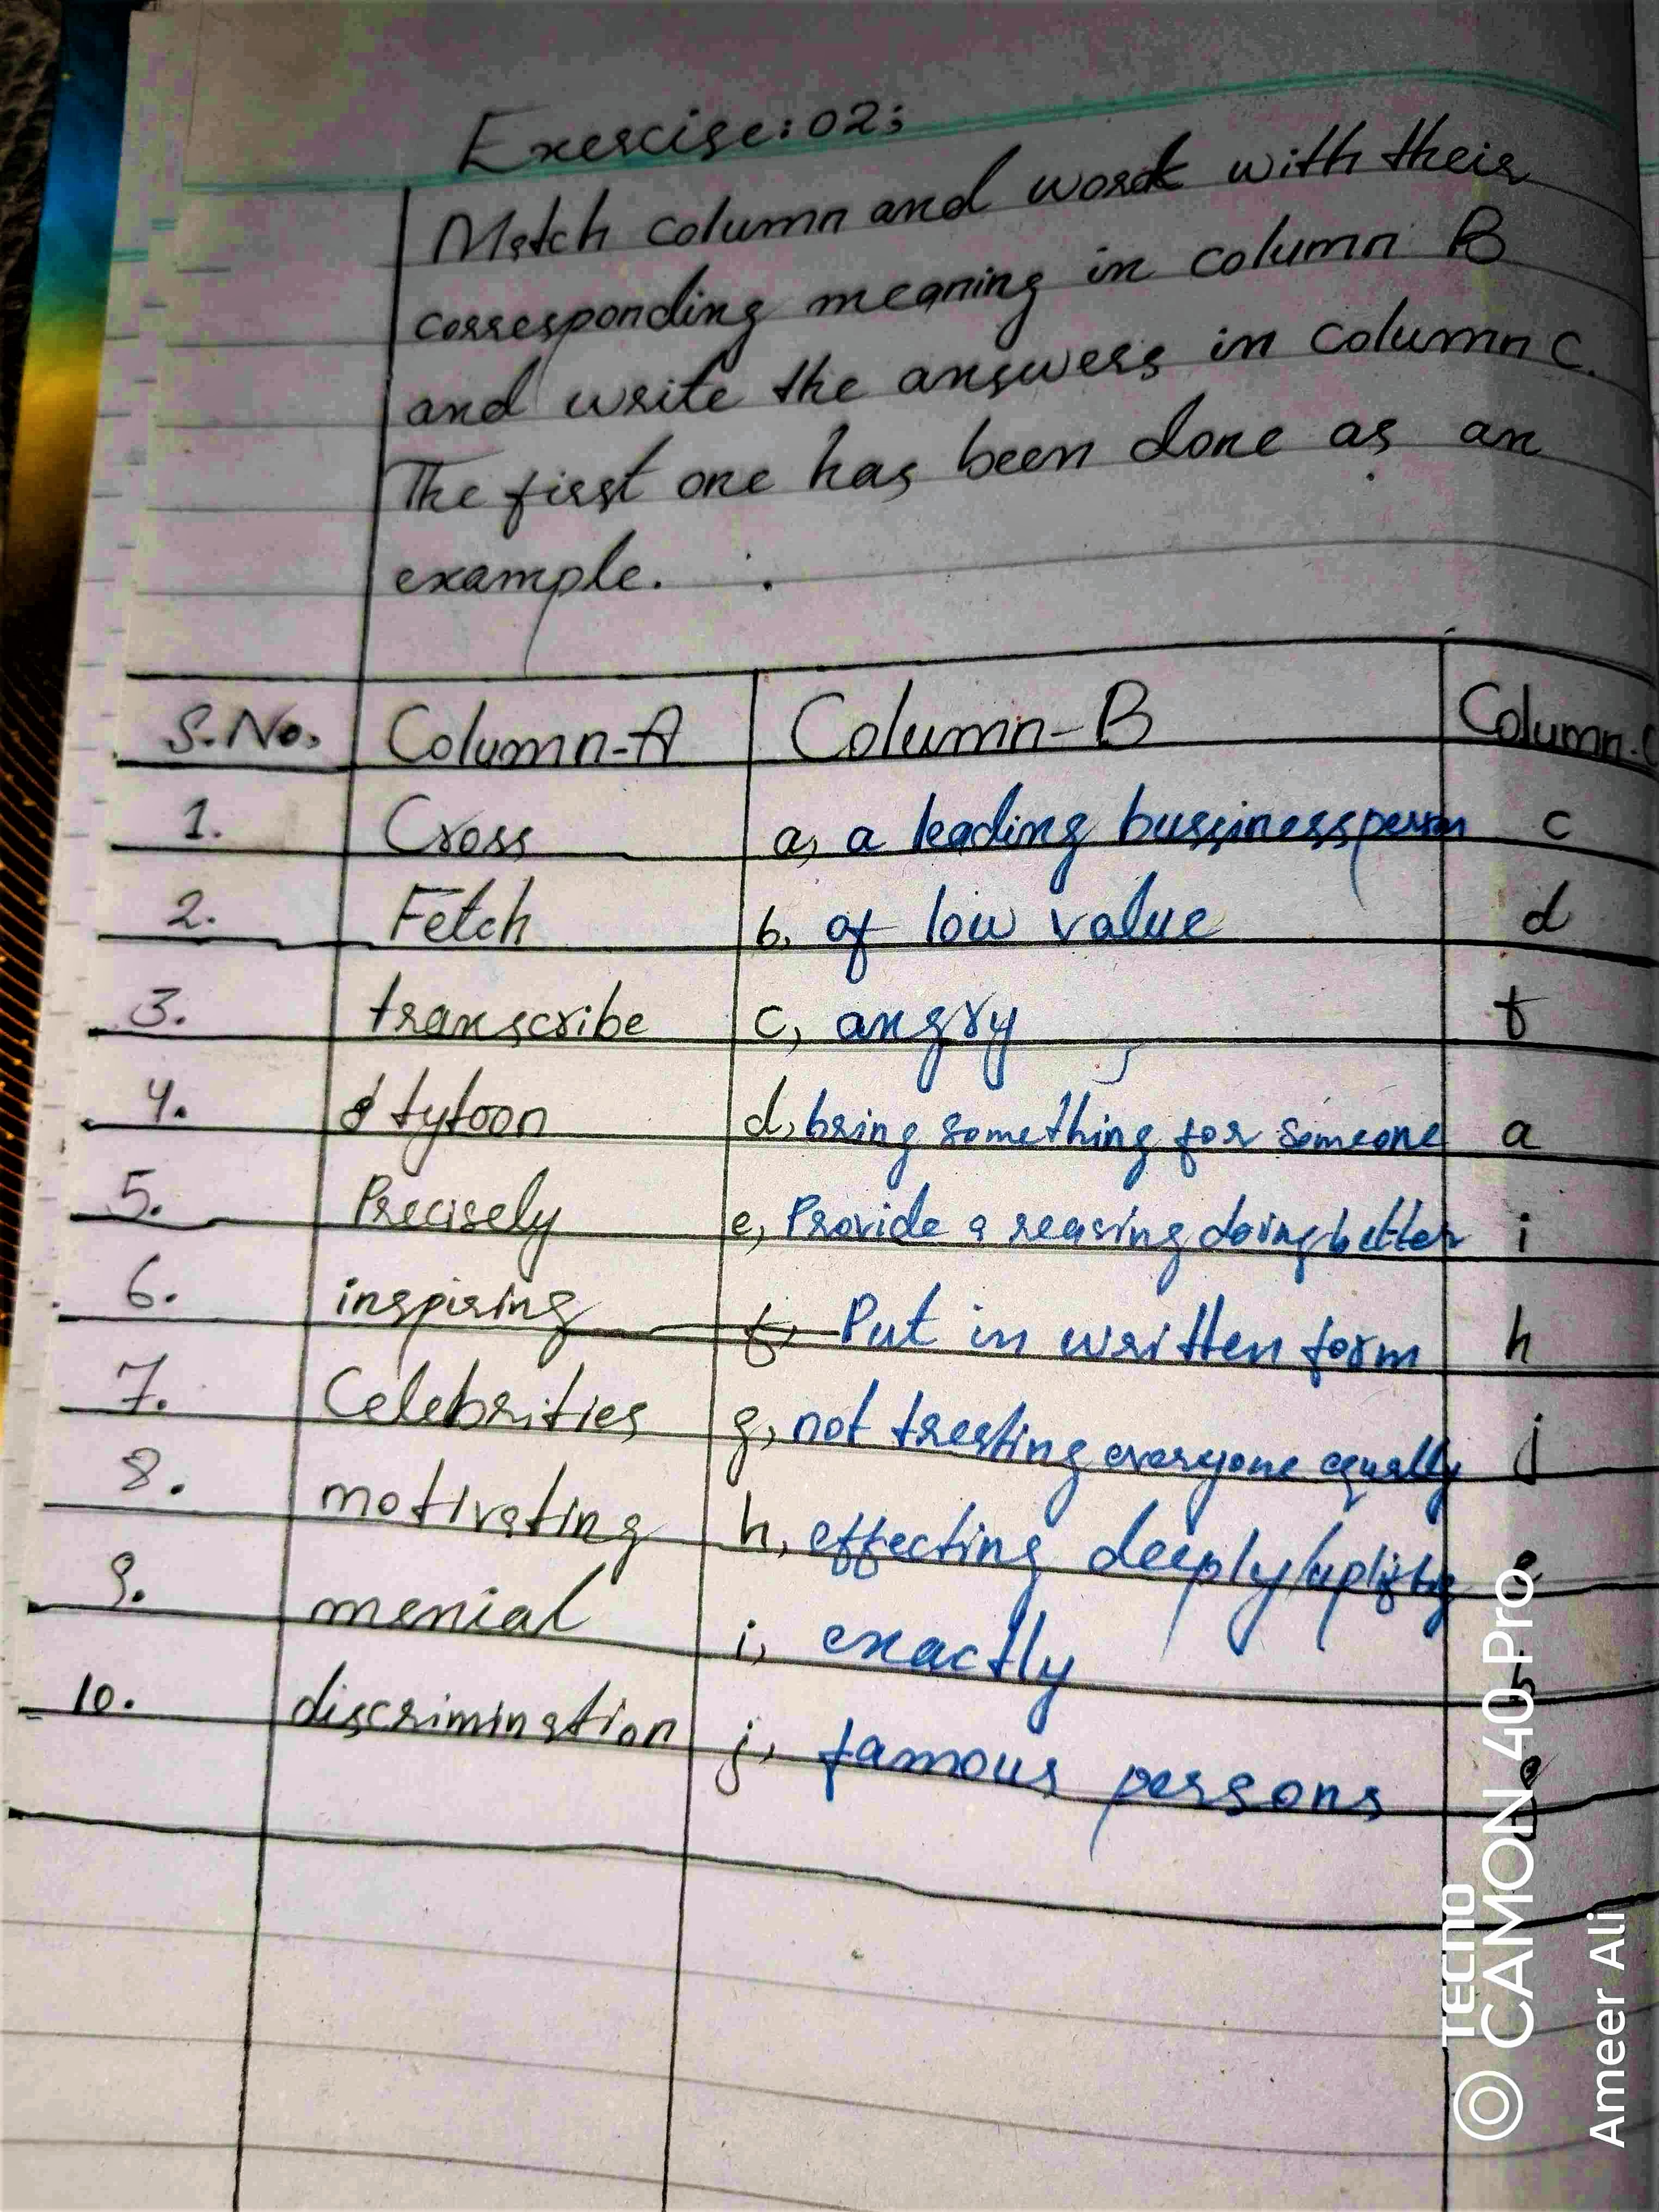 Exercise:02;
Match column and word with their
corresponding meaning in column B
and write the answers in column C.
The first one has been done as an
example.
S.No. Column-A Column-B Column-C
1. Cross a, a leading bussinessperson c
2. Fetch b, of low value d
3. transcribe c, angry f
4. tytoon d, bring something for someone a
5. Precisely e, Provide a reasing doing better i
6. inspiring f, Put in written form h
7. Celebrities g, not treating everyone equally j
8. motivating h, effecting deeply/uplifting
9. menial i, exactly
10. discrimination j, famous persons
TECNO
CAMON 40 Pro
Ameer Ali